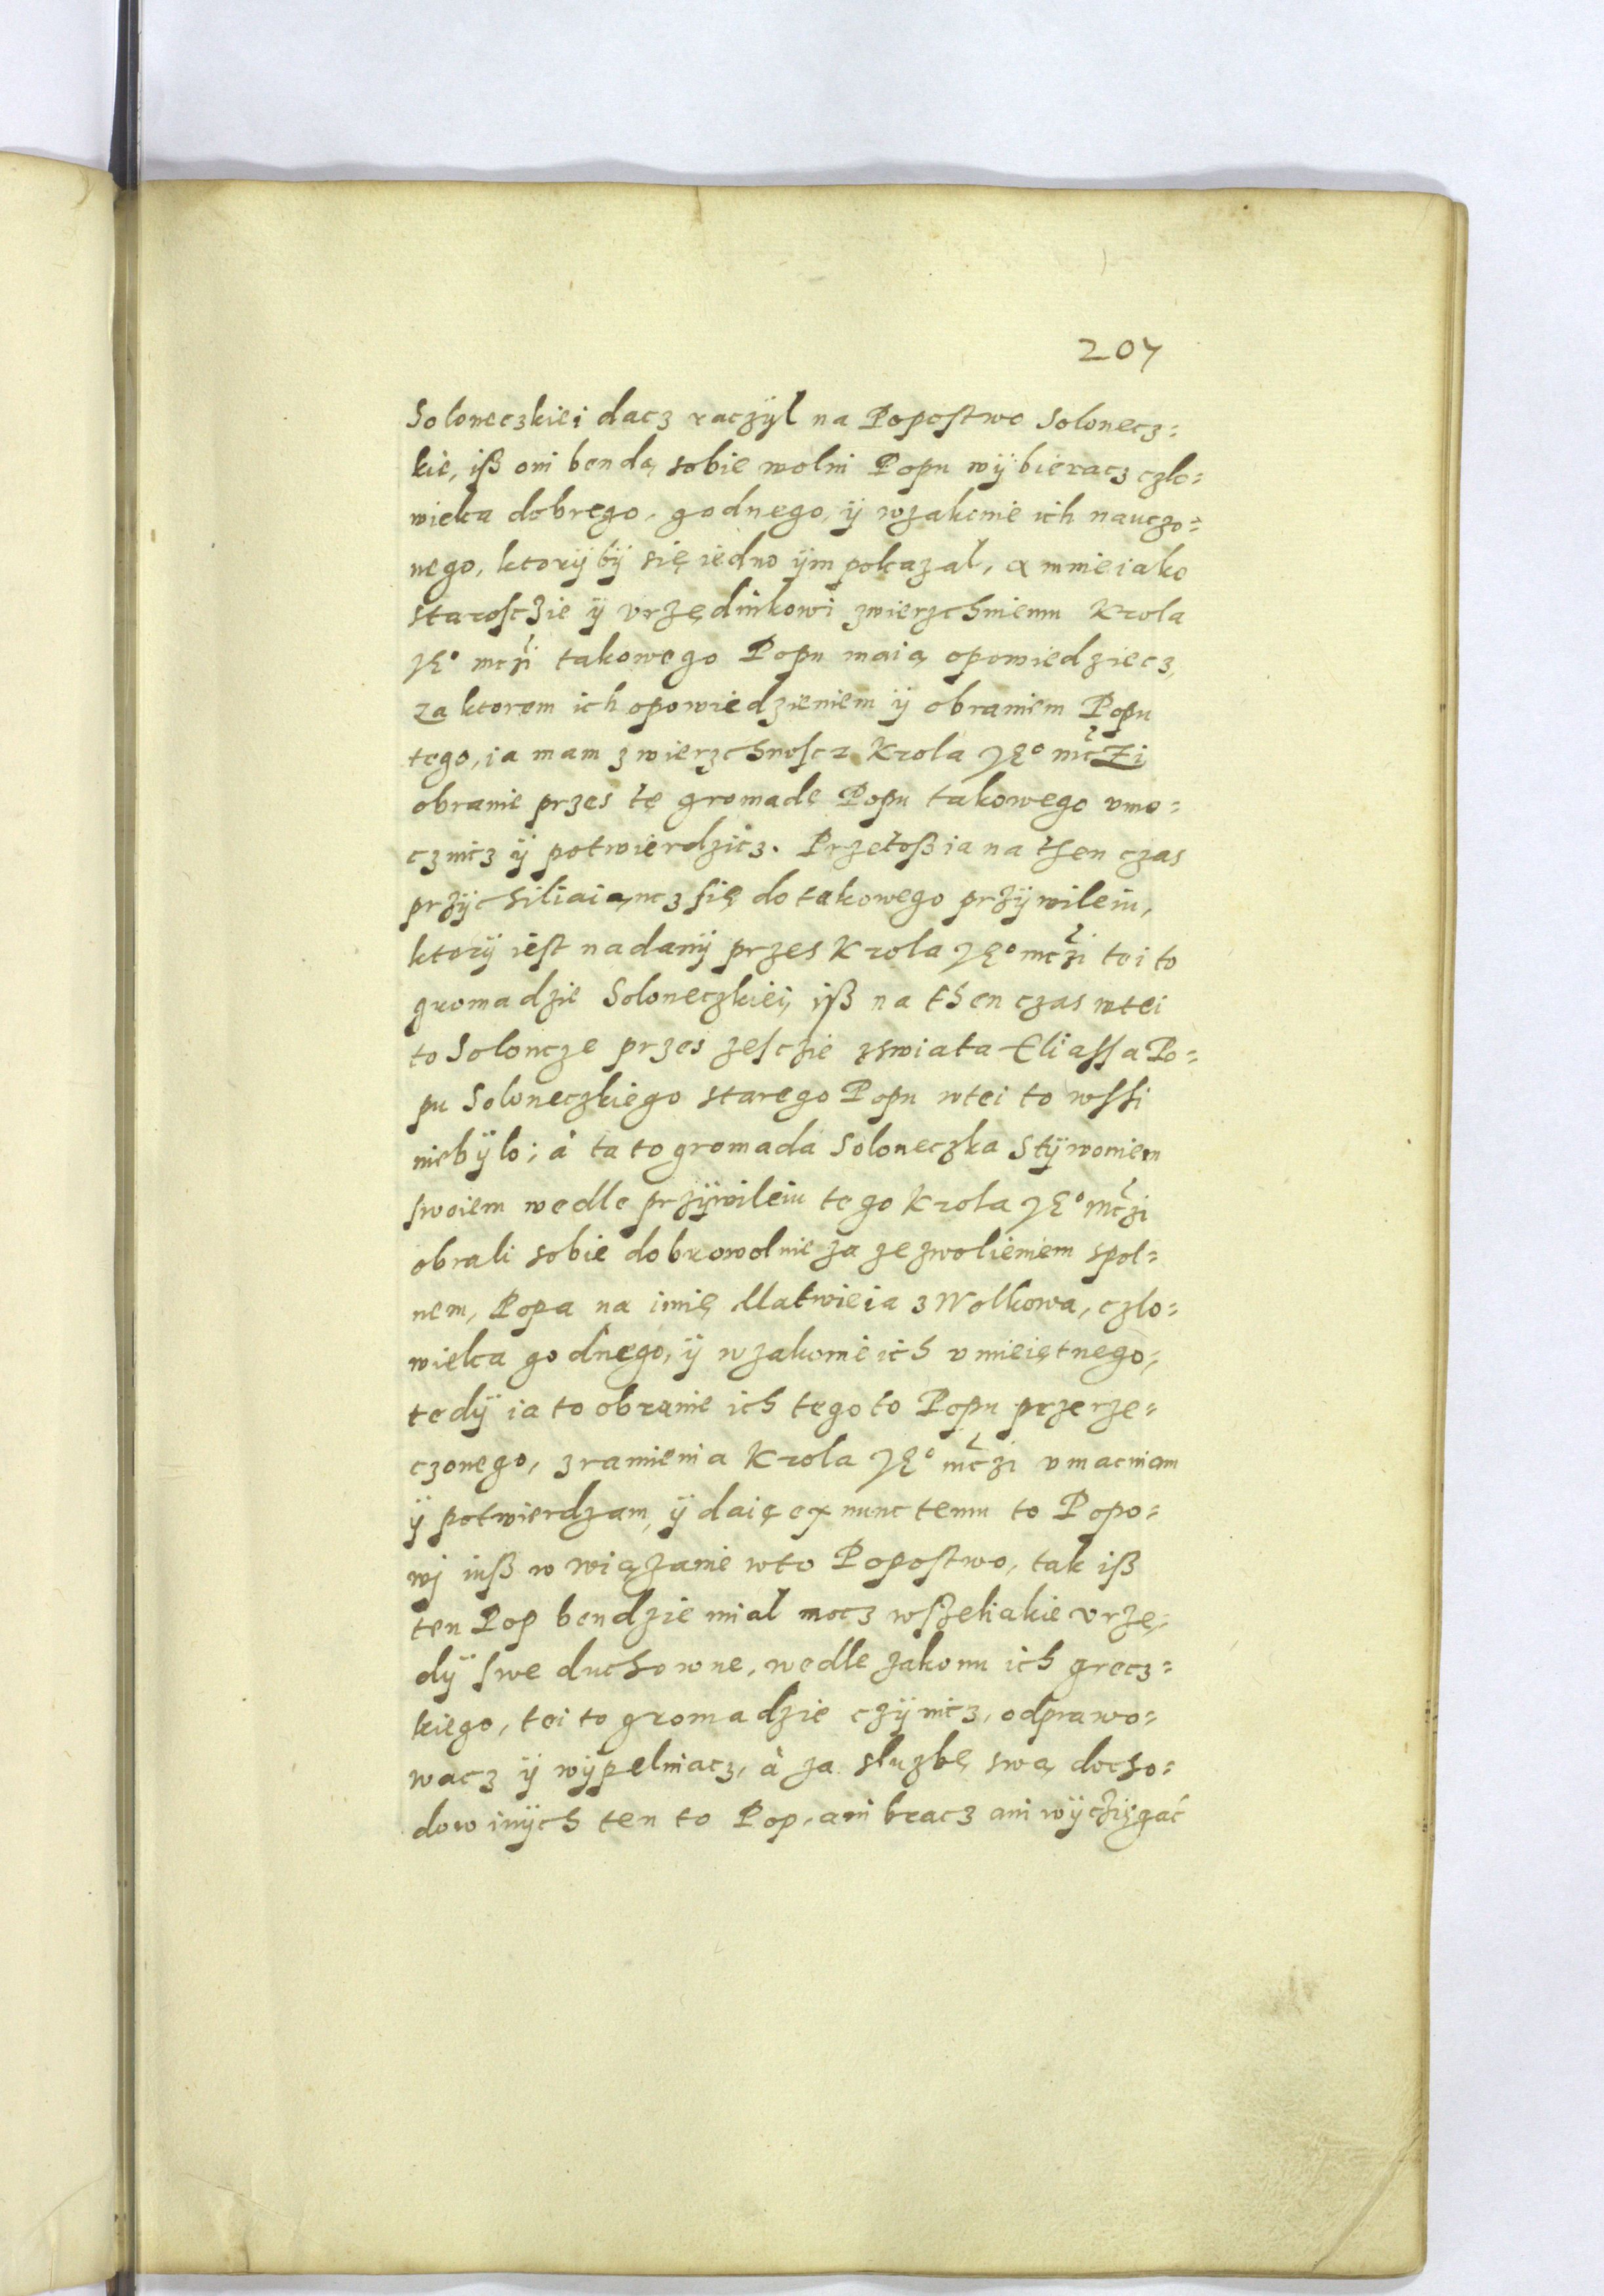 207
Soloneczkiei dacz raczÿl na Popostwo Solonecz=
kie, iß oni bendą sobie wolni Popu wÿbieracz czło=
wieka dobrego, godnego, ÿ wzakonie ich nauczo=
nego, ktorÿ bÿ się iedno ÿm pokazal, a mnie iako
starosczie ÿ vrzędnikowi zwierzchniemu Krola
JE° mczi takowego Popu maią opowiedziecz,
za ktorem ich opowiedzieniem ÿ obraniem Popu
tego, ia mam zwierzchnoscz Krola JE° mczi
obranie przes tę gromadę Popu takowego vmo=
cznicz ÿ potwierdzicz. Przetoß ia na then czas
przÿchiliaiąncz się do takowego przÿwileiu,
ktorÿ iest nadanÿ przes Krola JE° mczi tei to
gromadzie Soloneczkiei, iß na then czas wtei
to Soloncze przes zesczie zswiata Eliassa Po=
pu Soloneczkiego starego Popu wtei to wssi
niebÿlo; à ta to gromada Soloneczka Stÿwoniem
swoiem wedle przÿwileiu tego Krola JE° mczi
obrali sobie dobrowolnie za zezwolieniem spol=
nem, Popa na imię Matwieia z Wolkowa, czło=
wieka godnego, ÿ wzakonie ich vmieiętnego,
tedÿ ia to obranie ich tego to Popu przerze=
czonego, zramienia Krola JE° mczi vmacniam
ÿ potwierdzam, ÿ daię ex nunc temu to Popo=
wi iuß w wiązanie wto Popostwo, tak iß
ten Pop bendzie mial mocz wszeliakie vrzę=
dÿ swe duchowne, wedle zakonu ich grecz=
kiego, tei to gromadzie czÿnicz, odprawo=
wacz ÿ wÿpelniacz, à za słuzbę swą docho=
dow inÿch ten to Pop, ani bracz ani wÿczięgać